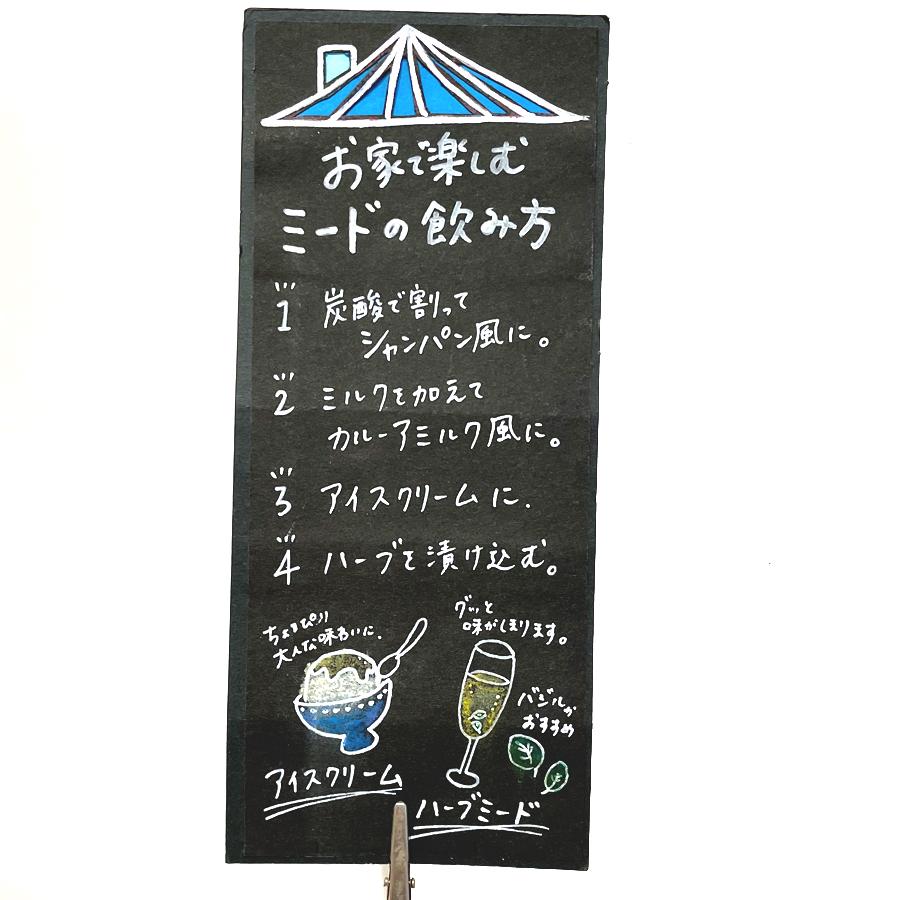 お家で楽しむ
ミードの飲み方
1 炭酸で割って
シャンパン風に。
2 ミルクを加えて
カルーアミルク風に。
3 アイスクリームに.
4 ハーブを漬け込む。
ちょっぴり
大人な味わいに.
アイスクリーム
グッと
味がしまります。
バジルが
おすすめ
ハーブミード